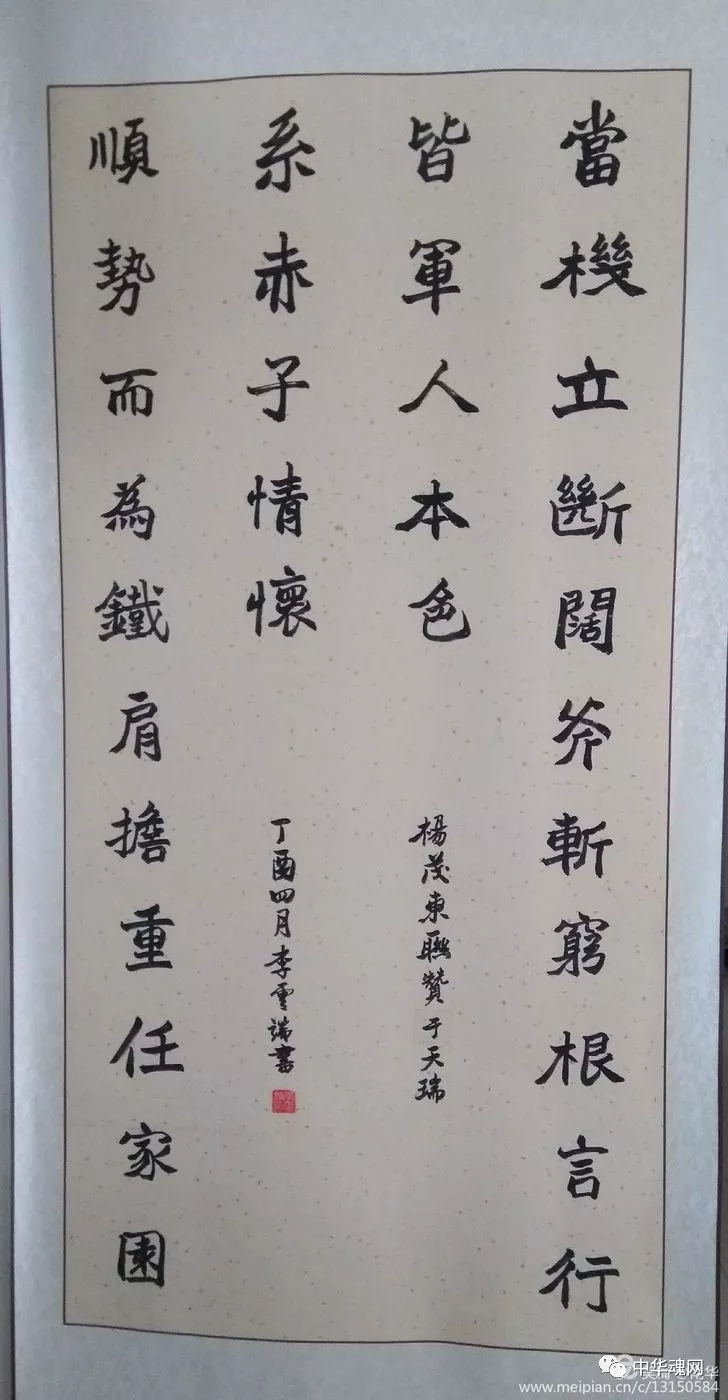 當機立斷闊斧斬窮根言行
皆軍人本色
順勢而為鐵肩擔重任家園
系赤子情懷
楊茂東聯贊于天瑞
丁酉四月李雲端書
中华魂网
www.meipian.cn/c/13150584